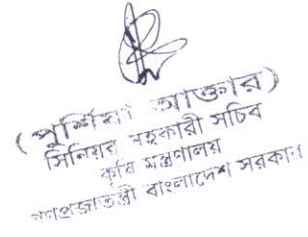 (পূর্ণিমা আক্তার)
সিনিয়র সহকারী সচিব
কৃষি মন্ত্রণালয়
গণপ্রজাতন্ত্রী বাংলাদেশ সরকার